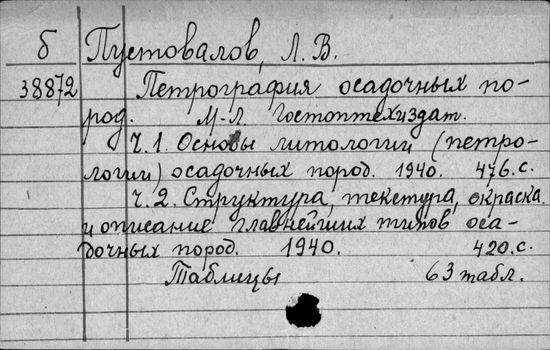 б Пустовалов, Л. В.
38872 Петрография осадочных по-
род. М-Л. Гостоптехиздат.
Ч.1. Основы литологии (петро-
логии) осадочных пород. 1940. 476.с.
Ч.2. Структура, текстура, окраска
и описание главнейших типов оса-
дочных пород. 1940. 420.с.
Таблицы 63 табл.